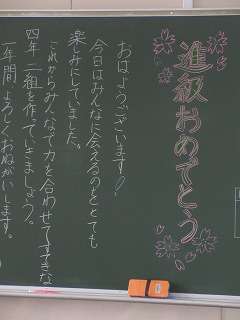 進級おめでとう
おはようございます!
今日はみんなに会えるのをとても
楽しみにしていました。
これからみんなで力を合わせてすてきな
四年二組を作っていきましょう。
一年間よろしくおねがいします。